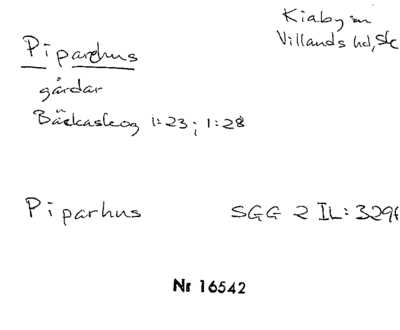 Kiaby sn
Villands hd, Sk
Piparehus
gårdar
Bäckaskog 1:23; 1:28
Piparhus SGG 2 IL: 329
Nr 16542